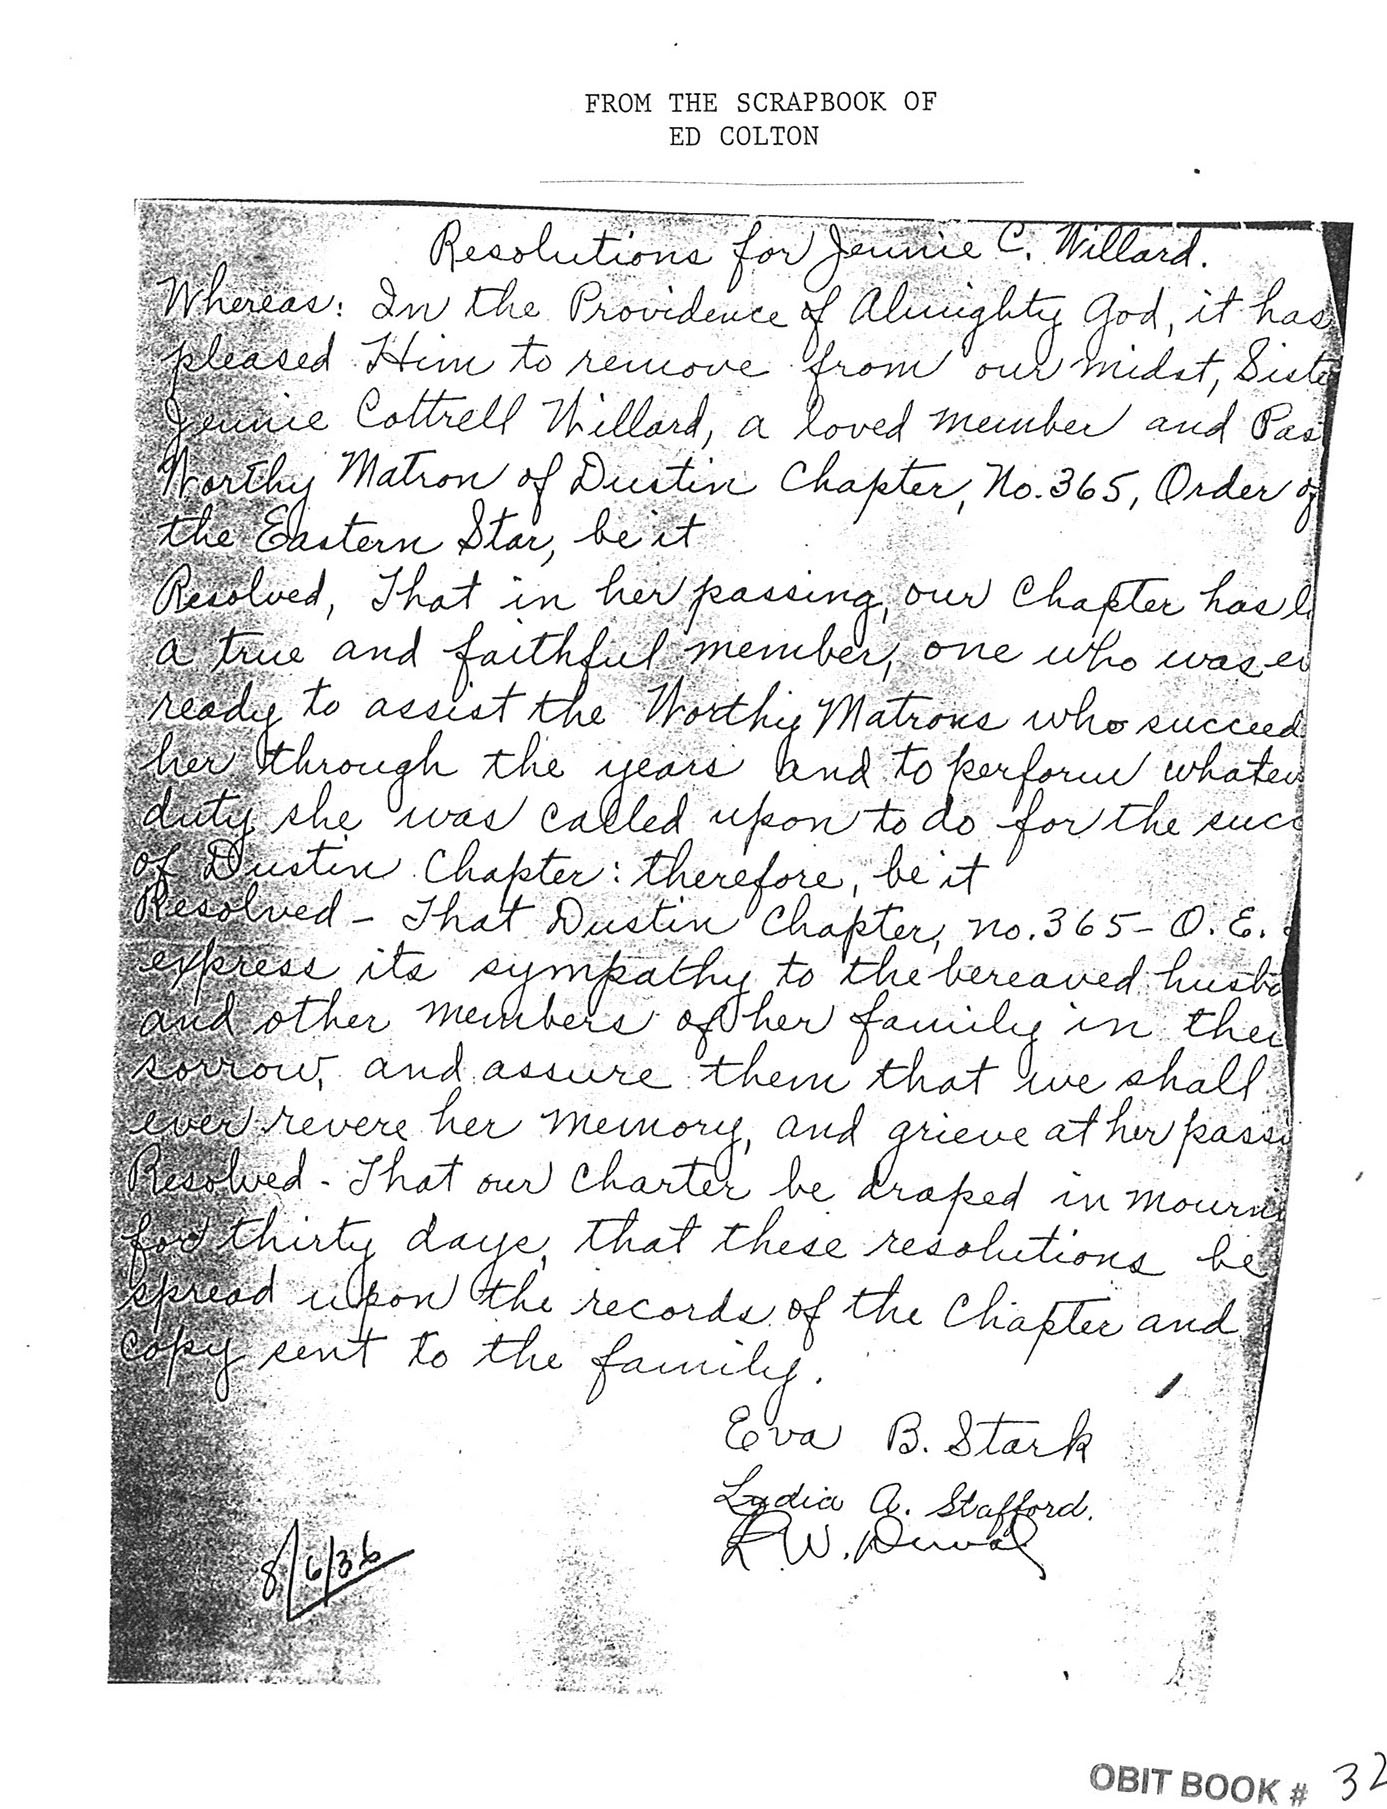 FROM THE SCRAPBOOK OF
ED COLTON
Resolutions for Jennie C. Willard.
Whereas: In the Providence of Almighty God, it has
pleased Him to remove from our midst, Siste
Jennie Cottrell Willard, a loved member and Pas
Worthy Matron of Dustin Chapter, No. 365, Order of
the Eastern Star, be it
Resolved, That in her passing, our Chapter has l
a true and faithful member, one who was ev
ready to assist the Worthy Matrons who succeed
her through the years and to perform whatev
duty she was called upon to do for the succ
of Dustin Chapter: therefore, be it
Resolved - That Dustin Chapter, no. 365 - O. E.
express its sympathy to the bereaved husba
and other members of her family in thei
sorrow, and assure them that we shall
ever revere her memory, and grieve at her passi
Resolved - That our Charter be draped in mourni
for thirty days, that these resolutions be
spread upon the records of the Chapter and
copy sent to the family.
Eva B. Stark
Lydia A. Stafford.
R. W. Duval
8/6/36
OBIT BOOK # 32